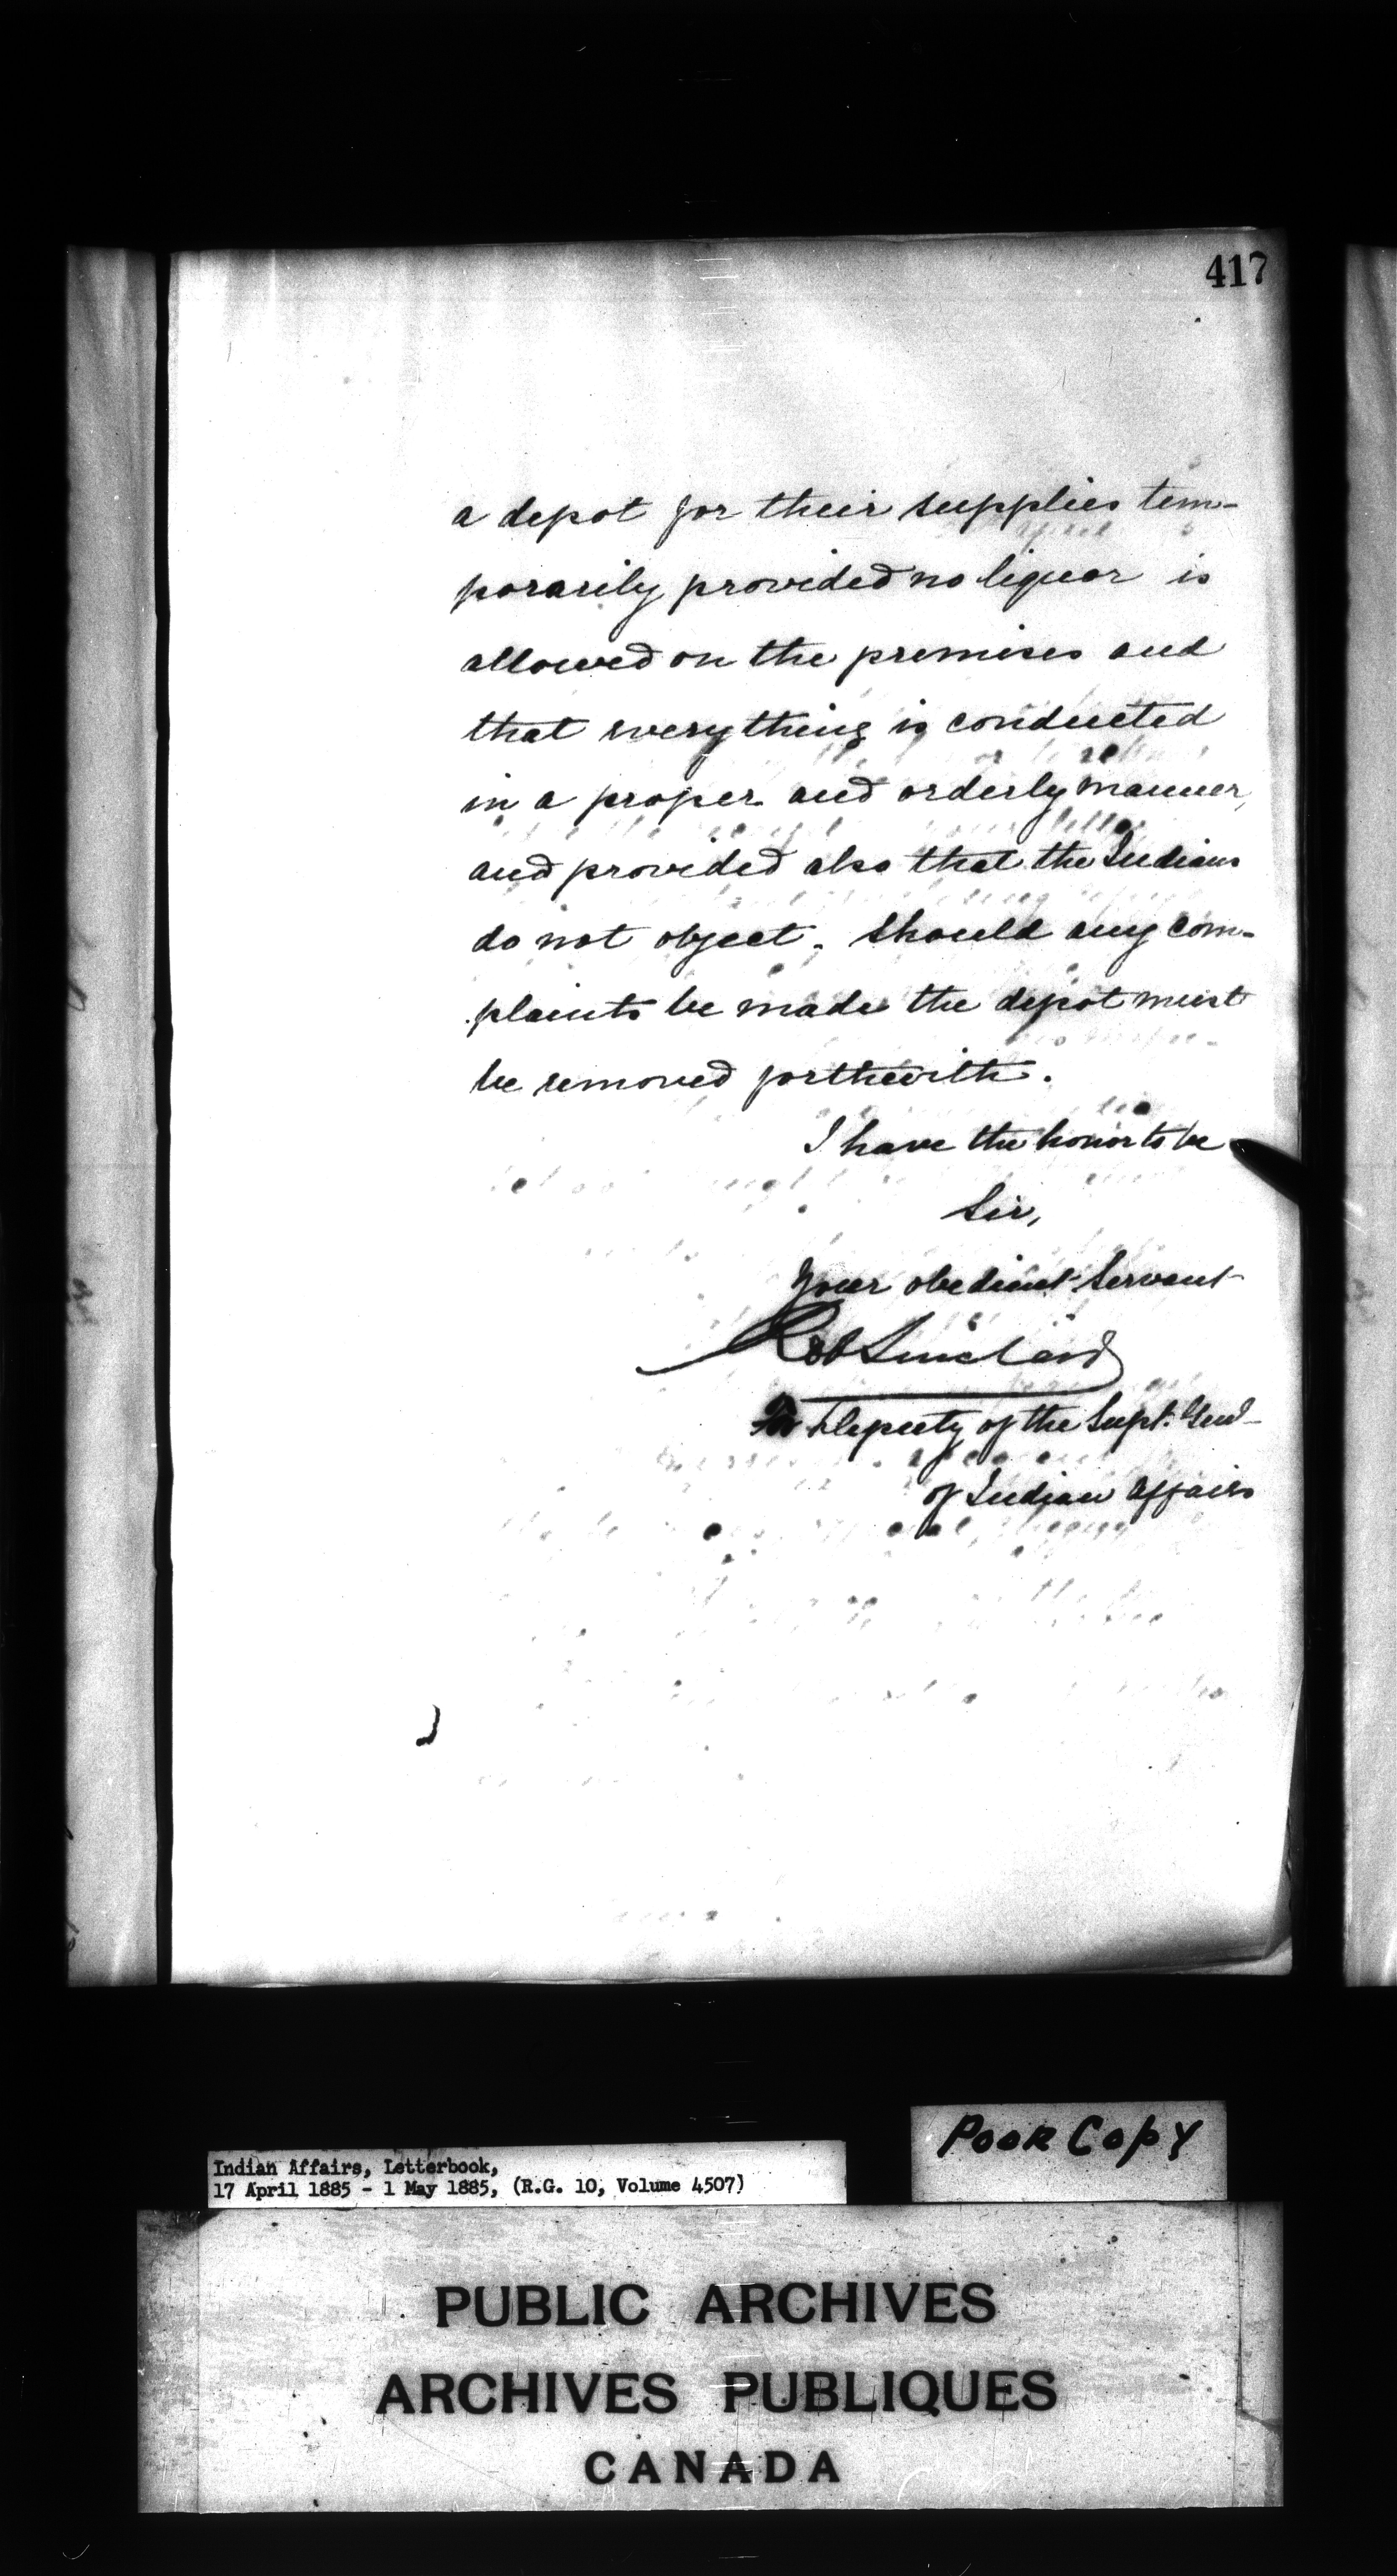 417
a depot for their supplies tem-
porarily provided no liquor is
allowed on the premises and
that everything is conducted
in a proper and orderly manner,
and provided also that the Indians
do not object. Should any com-
plaints be made the depot must
be removed forthwith.
I have the honor to be
Sir,
Your obedient Servant
Rob Sinclair
For Deputy of the Supt. Genl
of Indian Affairs
Poor Copy
Indian Affairs, Letterbook,
17 April 1885 - 1 May 1885, (R.G. 10, Volume 4507)
PUBLIC ARCHIVES
ARCHIVES PUBLIQUES
CANADA